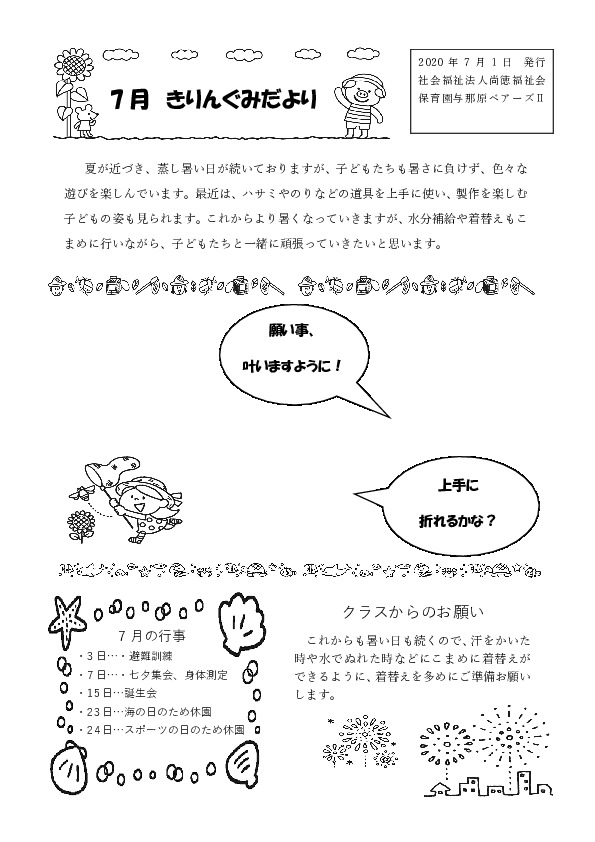 7月 きりんぐみだより
2020年7月1日 発行
社会福祉法人尚徳福祉会
保育園与那原ベアーズⅡ
夏が近づき、蒸し暑い日が続いておりますが、子どもたちも暑さに負けず、色々な
遊びを楽しんでいます。最近は、ハサミやのりなどの道具を上手に使い、製作を楽しむ
子どもの姿も見られます。これからより暑くなっていきますが、水分補給や着替えもこ
まめに行いながら、子どもたちと一緒に頑張っていきたいと思います。
願い事、
叶いますように!
上手に
折れるかな?
7月の行事
・3日…・避難訓練
・7日…・七夕集会、身体測定
・15日…誕生会
・23日…海の日のため休園
・24日…スポーツの日のため休園
クラスからのお願い
これからも暑い日も続くので、汗をかいた
時や水でぬれた時などにこまめに着替えが
できるように、着替えを多めにご準備お願い
します。